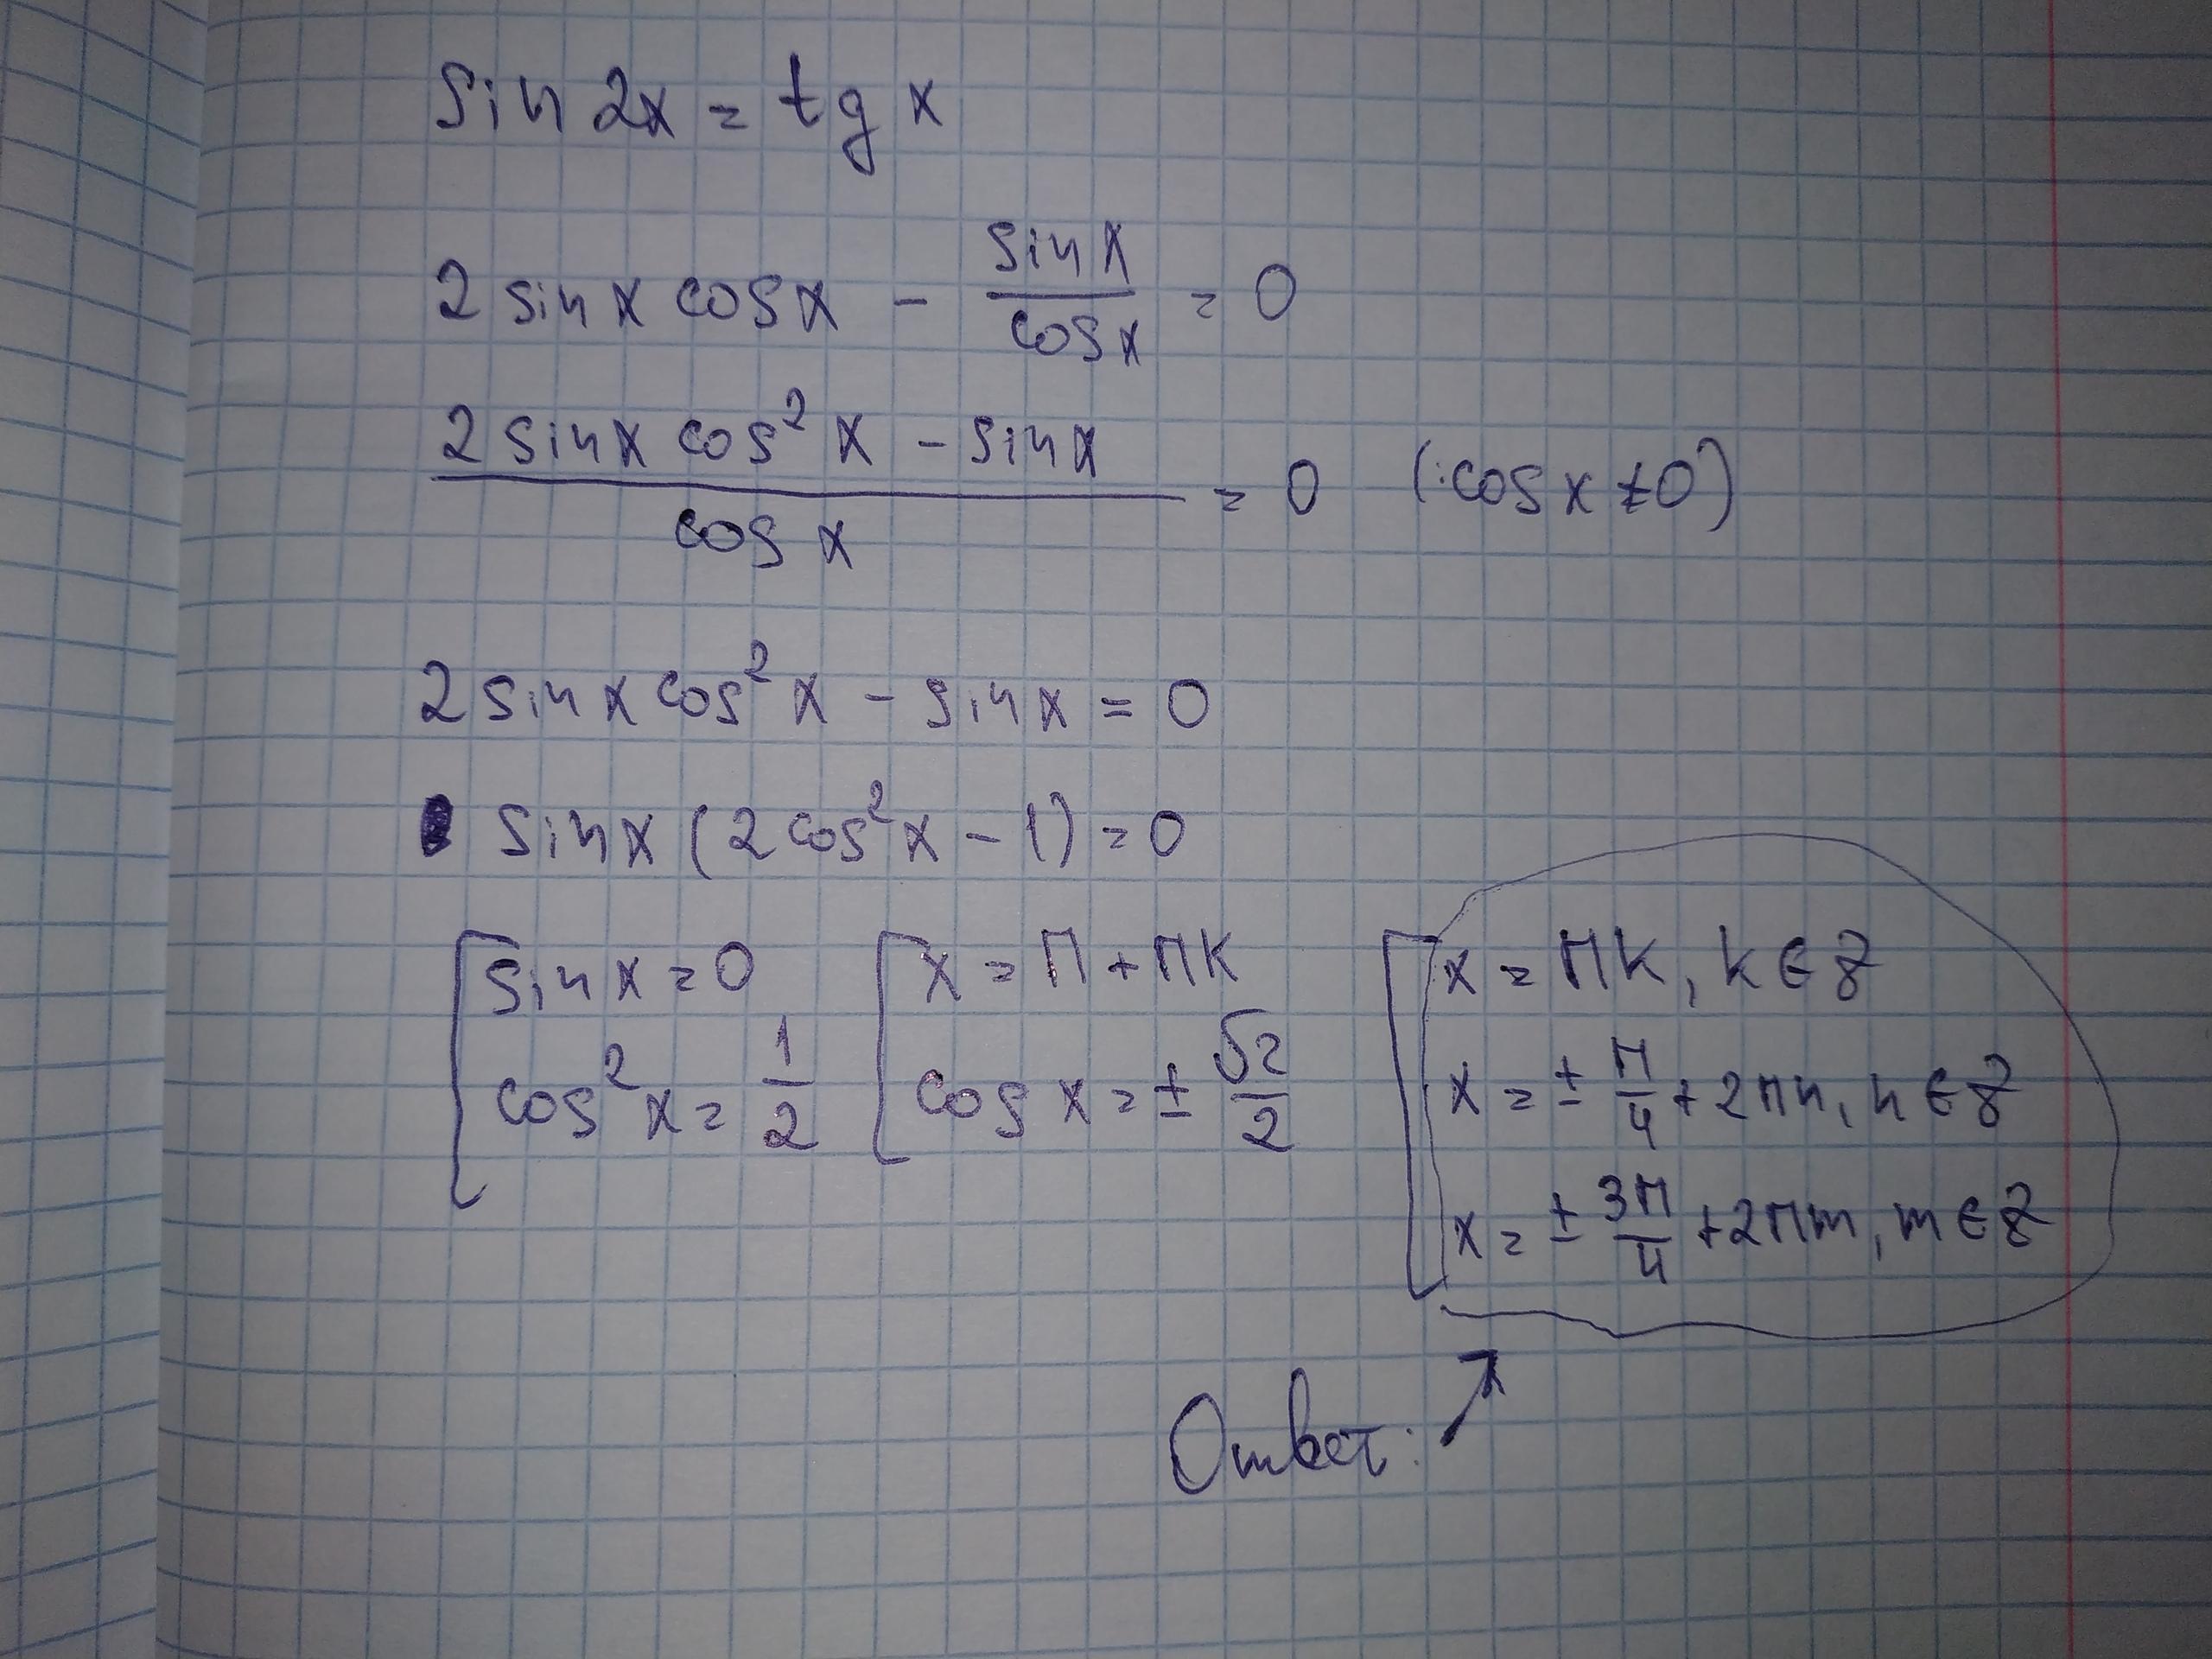 sin 2x = tg x
2 sin x cos x - sin x / cos x = 0
(2 sin x cos² x - sin x) / cos x = 0 (: cos x ≠ 0)
2 sin x cos² x - sin x = 0
sin x (2 cos² x - 1) = 0
[ sin x = 0 [ x = π + πk [ x = πk, k ∈ Z
cos² x = 1/2 cos x = ± √2/2 x = ± π/4 + 2πn, n ∈ Z
x = ± 3π/4 + 2πm, m ∈ Z
Ответ: ↗